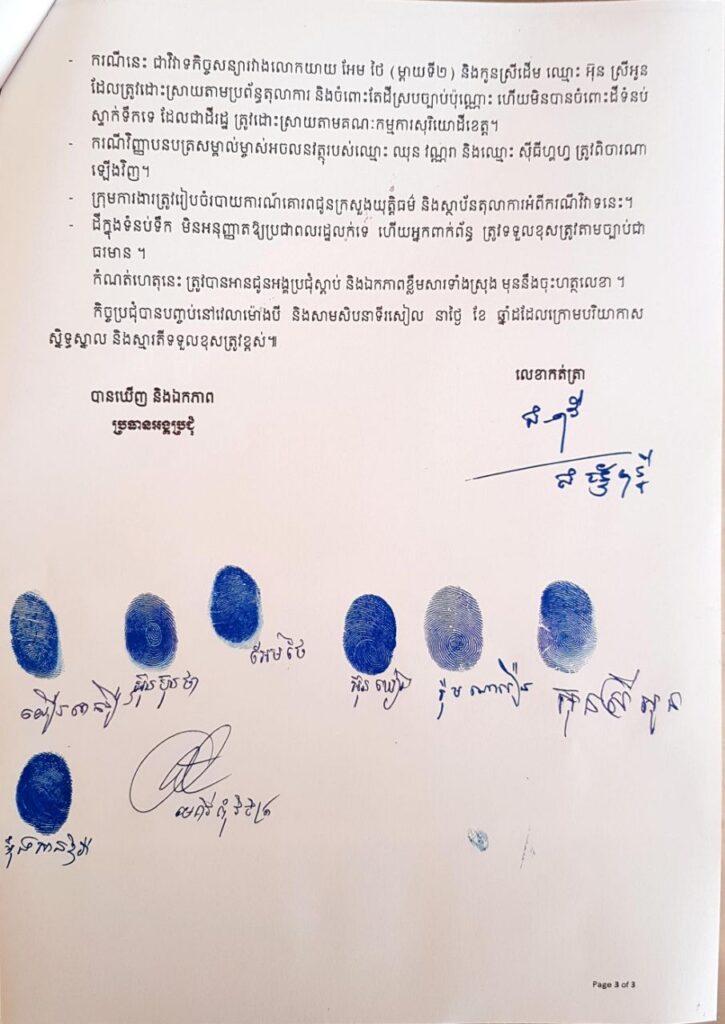 - ករណីនេះ ជាវិវាទកិច្ចសន្យារវាងលោកយាយ អែម ថៃ (ម្តាយទី២) និងកូនស្រីដើម ឈ្មោះ អ៊ុន ស្រីអូន
ដែលត្រូវដោះស្រាយតាមប្រព័ន្ធតុលាការ និងចំពោះតែដីស្របច្បាប់ប៉ុណ្ណោះ ហើយមិនបានចំពោះដីទំនប់
ស្ទាក់ទឹកទេ ដែលជាដីរដ្ឋ ត្រូវដោះស្រាយតាមគណៈកម្មការសុរិយោដីខេត្ត។
- ករណីវិញ្ញាបនបត្រសម្គាល់ម្ចាស់អចលនវត្ថុរបស់ឈ្មោះ ឈុន វណ្ណរា និងឈ្មោះ ត្រូវពិចារណា
ឡើងវិញ។
- ក្រុមការងារត្រូវរៀបចំរបាយការណ៍គោរពជូនក្រសួងយុត្តិធម៌ និងស្ថាប័នតុលាការអំពីករណីវិវាទនេះ។
- ដីក្នុងទំនប់ទឹក មិនអនុញ្ញាតឱ្យប្រជាពលរដ្ឋលក់ទេ ហើយអ្នកពាក់ព័ន្ធ ត្រូវទទួលខុសត្រូវតាមច្បាប់ជា
ធរមាន ។
កំណត់ហេតុនេះ ត្រូវបានអានជូនអង្គប្រជុំស្តាប់ និងឯកភាពខ្លឹមសារទាំងស្រុង មុននឹងចុះហត្ថលេខា ។
កិច្ចប្រជុំបានបញ្ចប់នៅវេលាម៉ោងបី និងសាមសិបនាទីរសៀល នាថ្ងៃ ខែ ឆ្នាំដដែលក្រោមបរិយាកាស
ស្និទ្ធស្នាល និងស្មារតីទទួលខុសត្រូវខ្ពស់៕
លេខាកត់ត្រា
បានឃើញ និងឯកភាព
ប្រធានអង្គប្រជុំ
អែម ថៃ
ស្រី អូន
Page 3 of 3